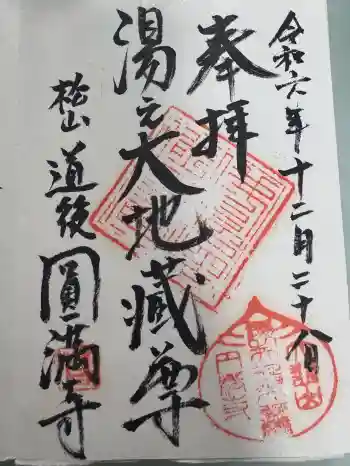 令和六年十二月二十八日
奉拝
湯之大地蔵尊
桧山
道後
圓満寺